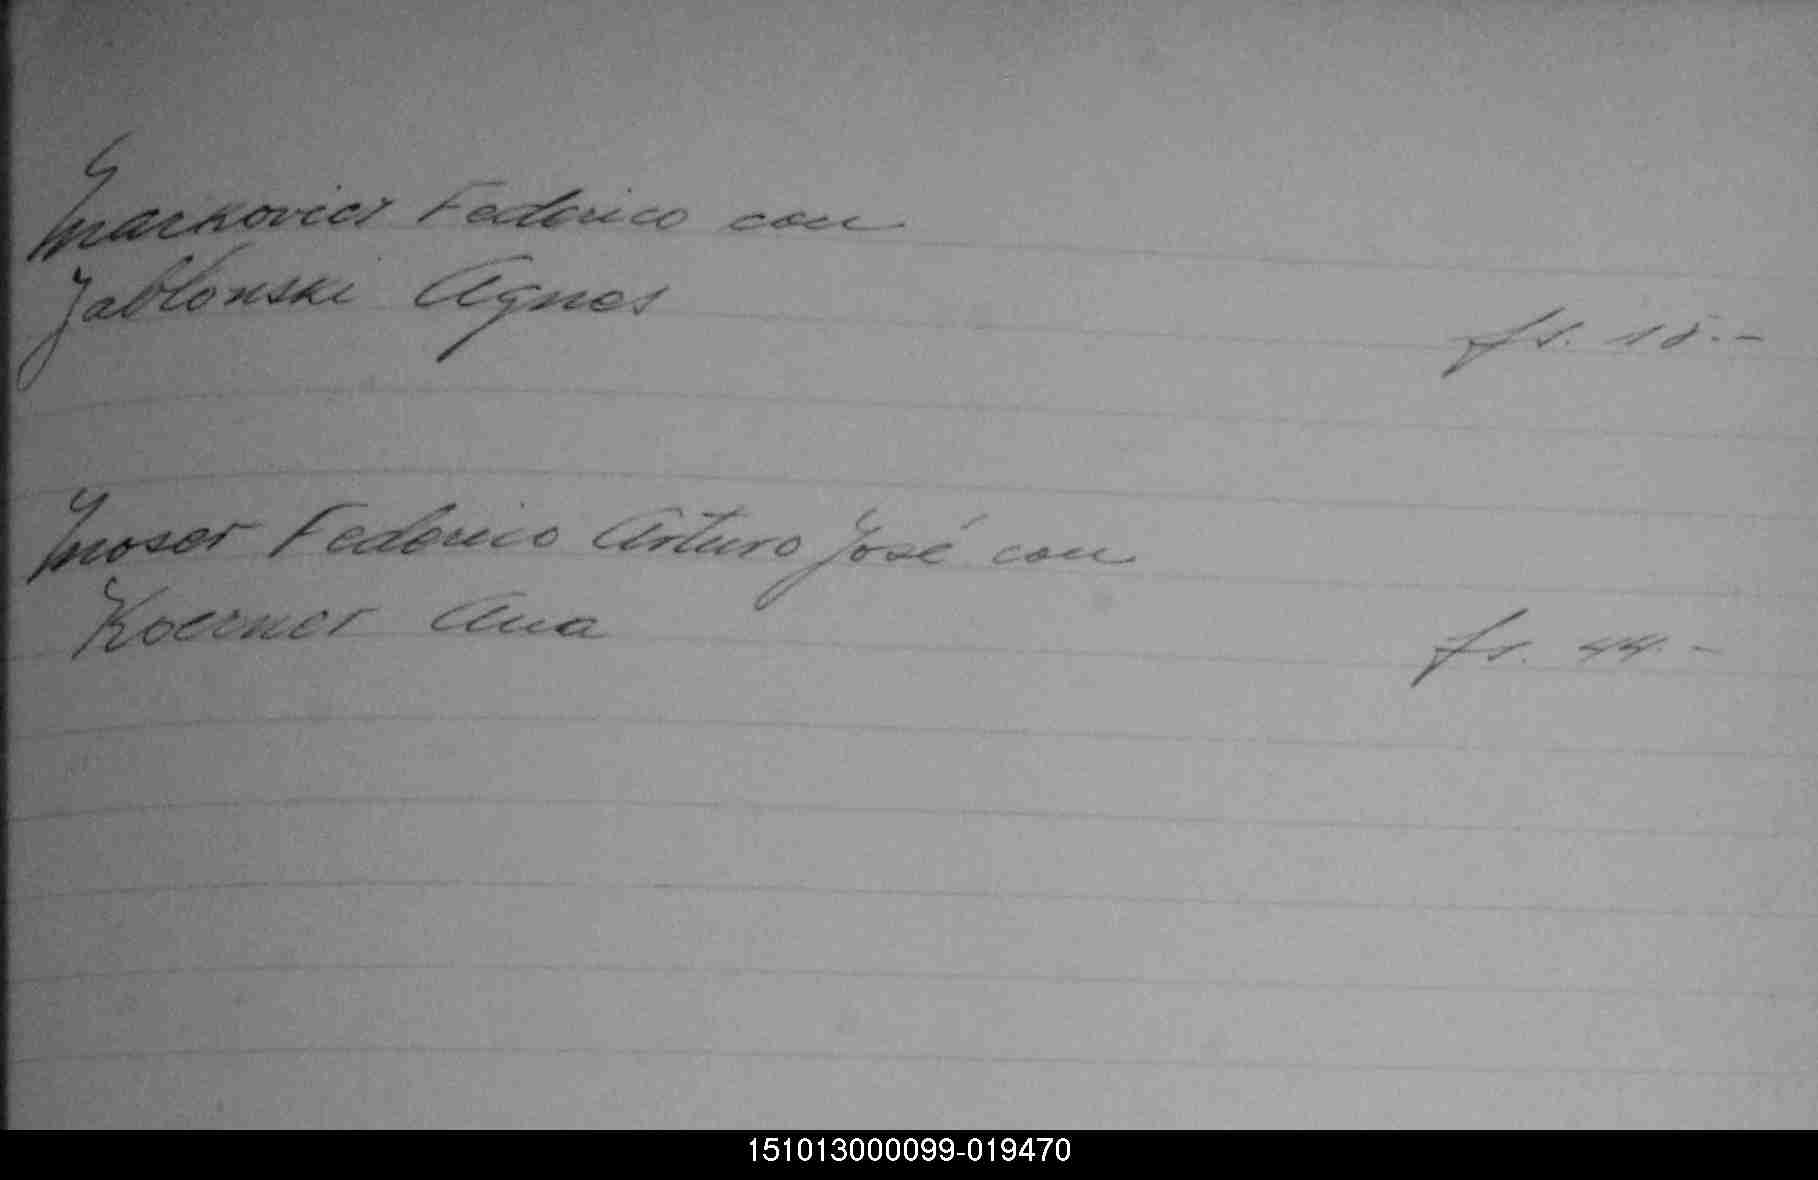 Markovici Federico con
Jablonski Agnes
fs. 15.-
Moser Federico Arturo José con
Koerner Ana
fs. 44.-
151013000099-019470